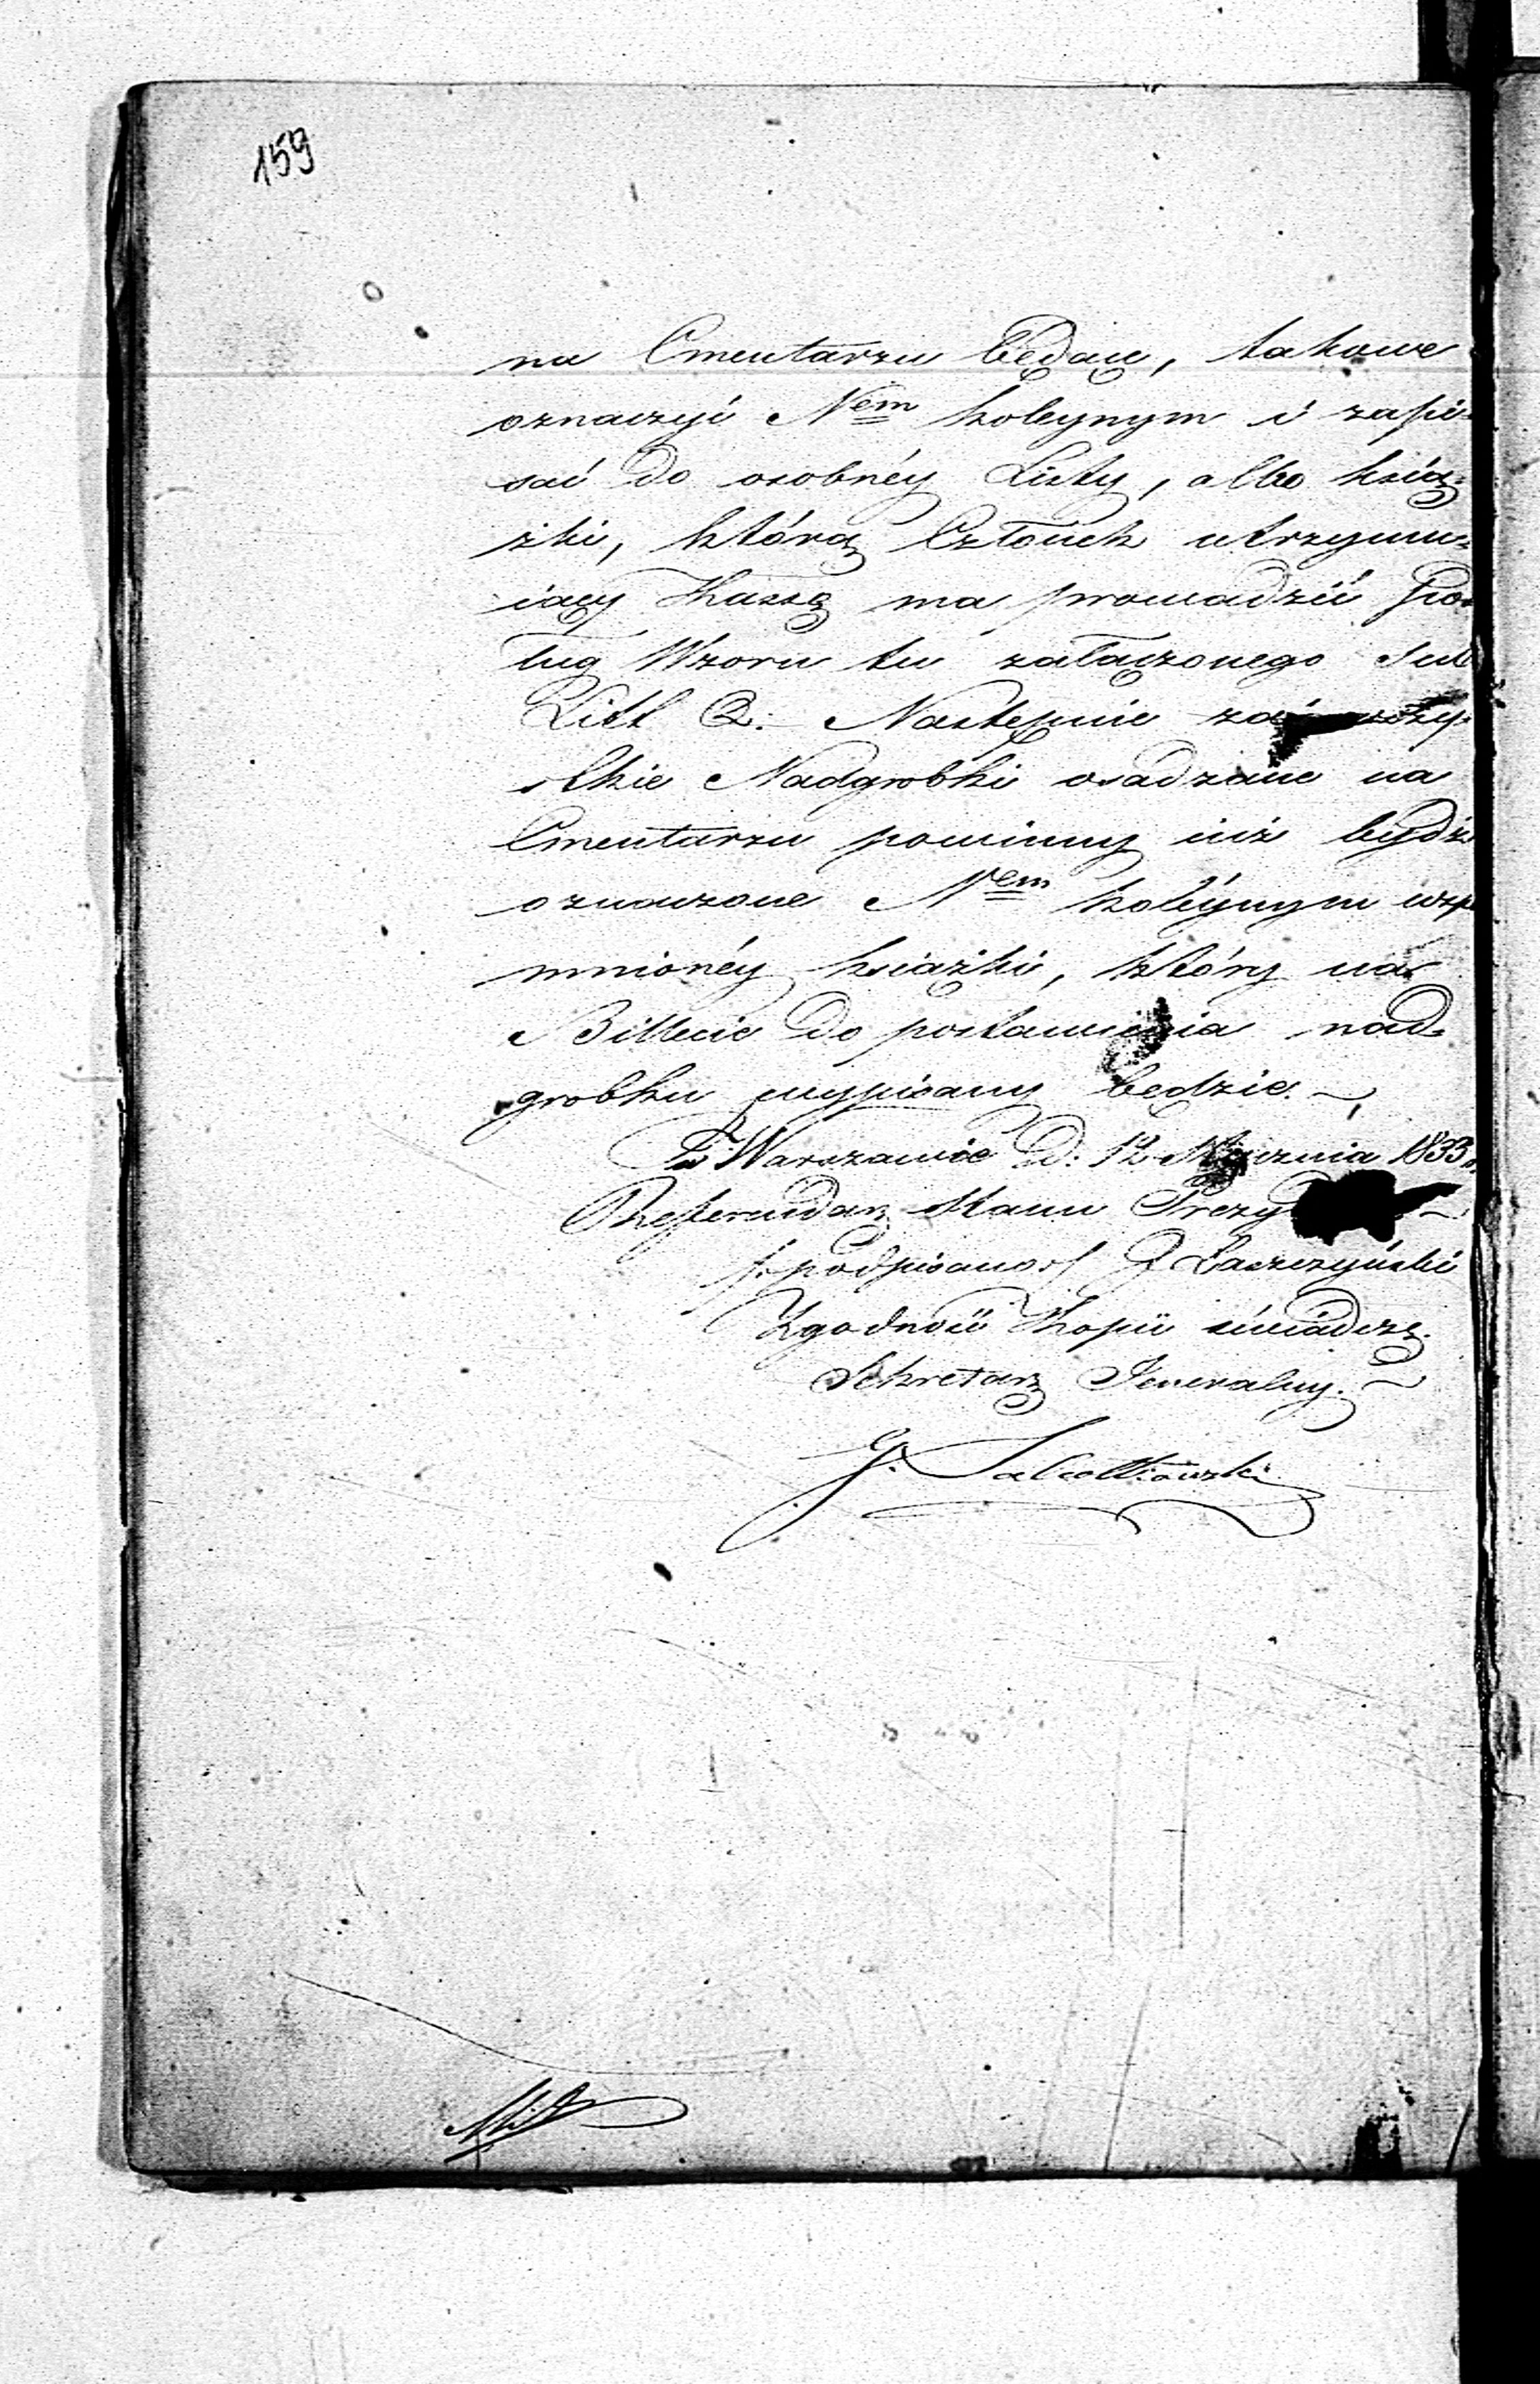 159
na Cmentarzu będące, takowe
oznaczyć N<sup>em</sup> koleynym i zapi=
sać do osobnéy Listy, albo książ=
żki, którą Członek utrzymu=
iący Kassę ma prowadzić Po=
dług Wzoru tu załączonego sub
Litt Q: Następnie zaś wszy=
stkie Nadgrobki osadzane na
Cmentarzu powinny iuż bydź
oznaczone N<sup>em</sup> koléynym wspo
mnionéy książki, który na
Billecie do postawienia nad=
grobku wypisany będzie.
w Warszawie d: 12 Stycznia 1833 r.
Referendarz Stanu
/:podpisano:/ Łaszczyński
Zgodność Kopii świadczę.
Sekretarz Jeneralny.
G.